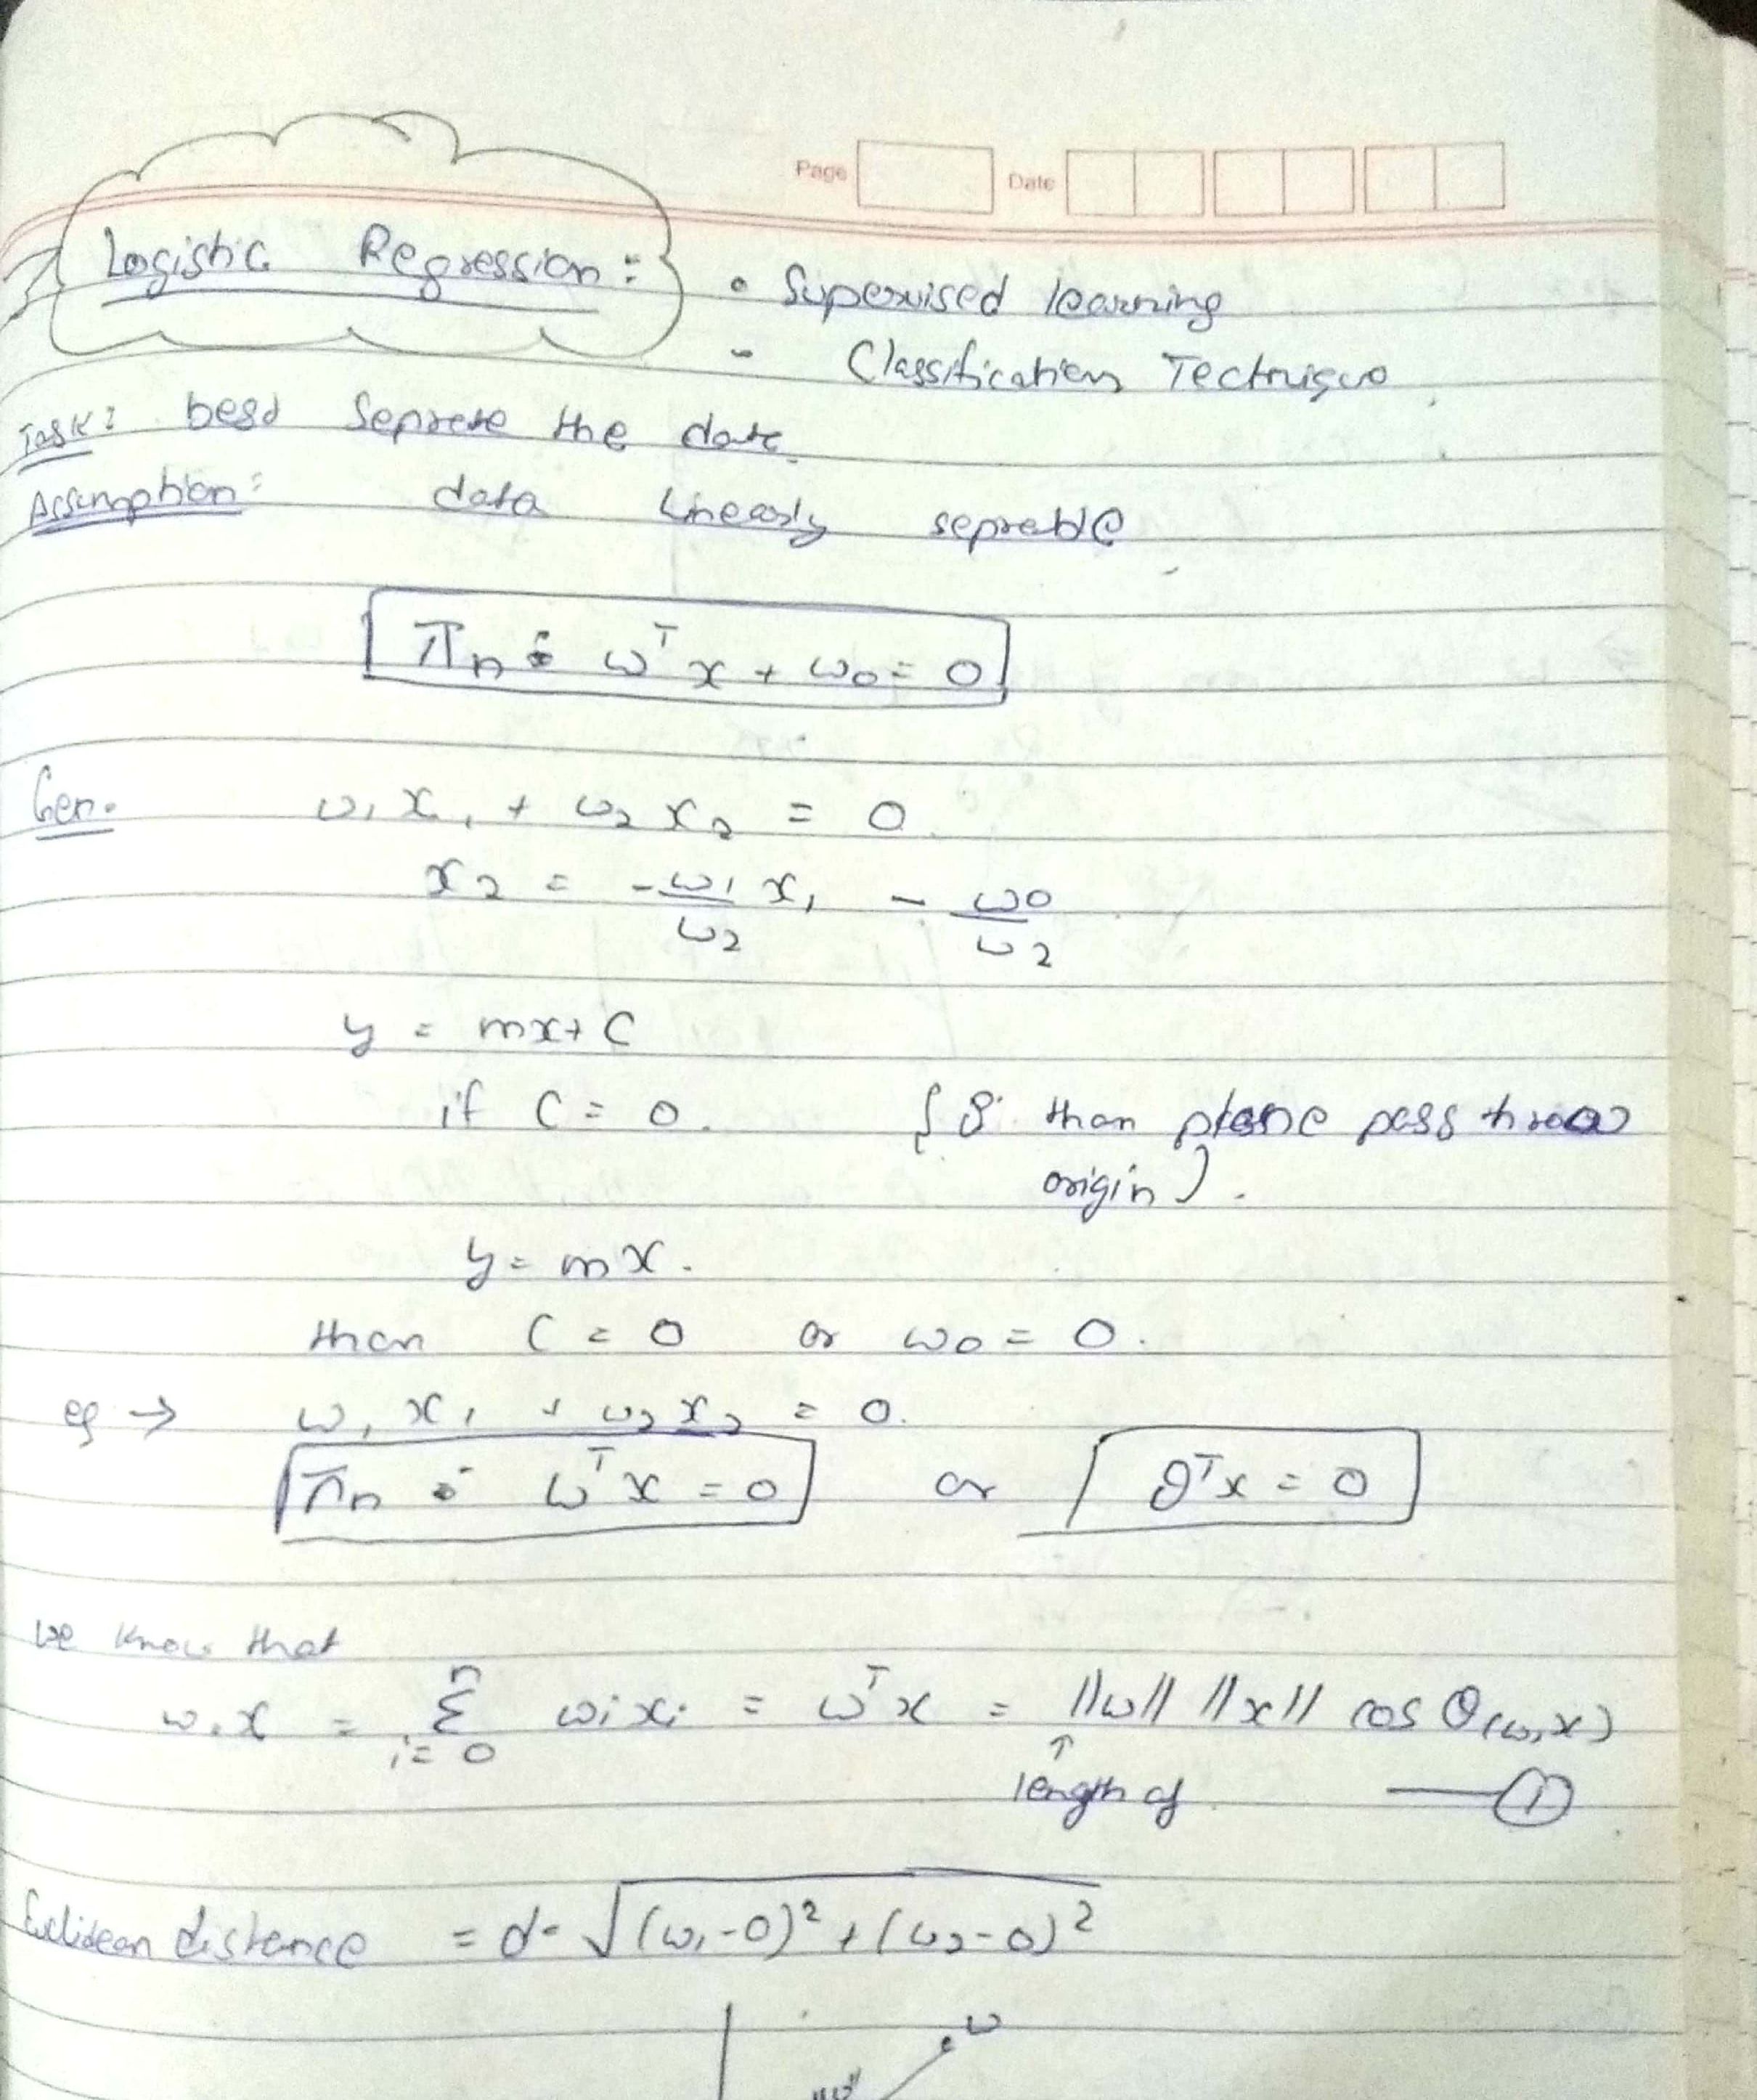 Page Date
Logistic Regression :
• Supervised learning
- Classification Technique
Task: best Seprete the date
Assumption: data Linearly seprable
πn : ω^T x + ω0 = 0
Gen. ω1 x1 + ω2 x2 = 0
x2 = -ω1/ω2 x1 - ω0/ω2
y = mx + C
if C = 0. { than plane pass throw
origin }.
y = mx.
than C = 0 or ω0 = 0.
eq → ω1 x1 + ω2 x2 = 0.
πn : ω^T x = 0 or θ^T x = 0
we know that
ω.x = Σ_{i=0}^{n} ωi xi = ω^T x = ||ω|| ||x|| cos θ(ω,x)
↑
length of —— ①
Euclidean distance = d = √((ω1-0)² + (ω2-0)²)
ω
"ω"